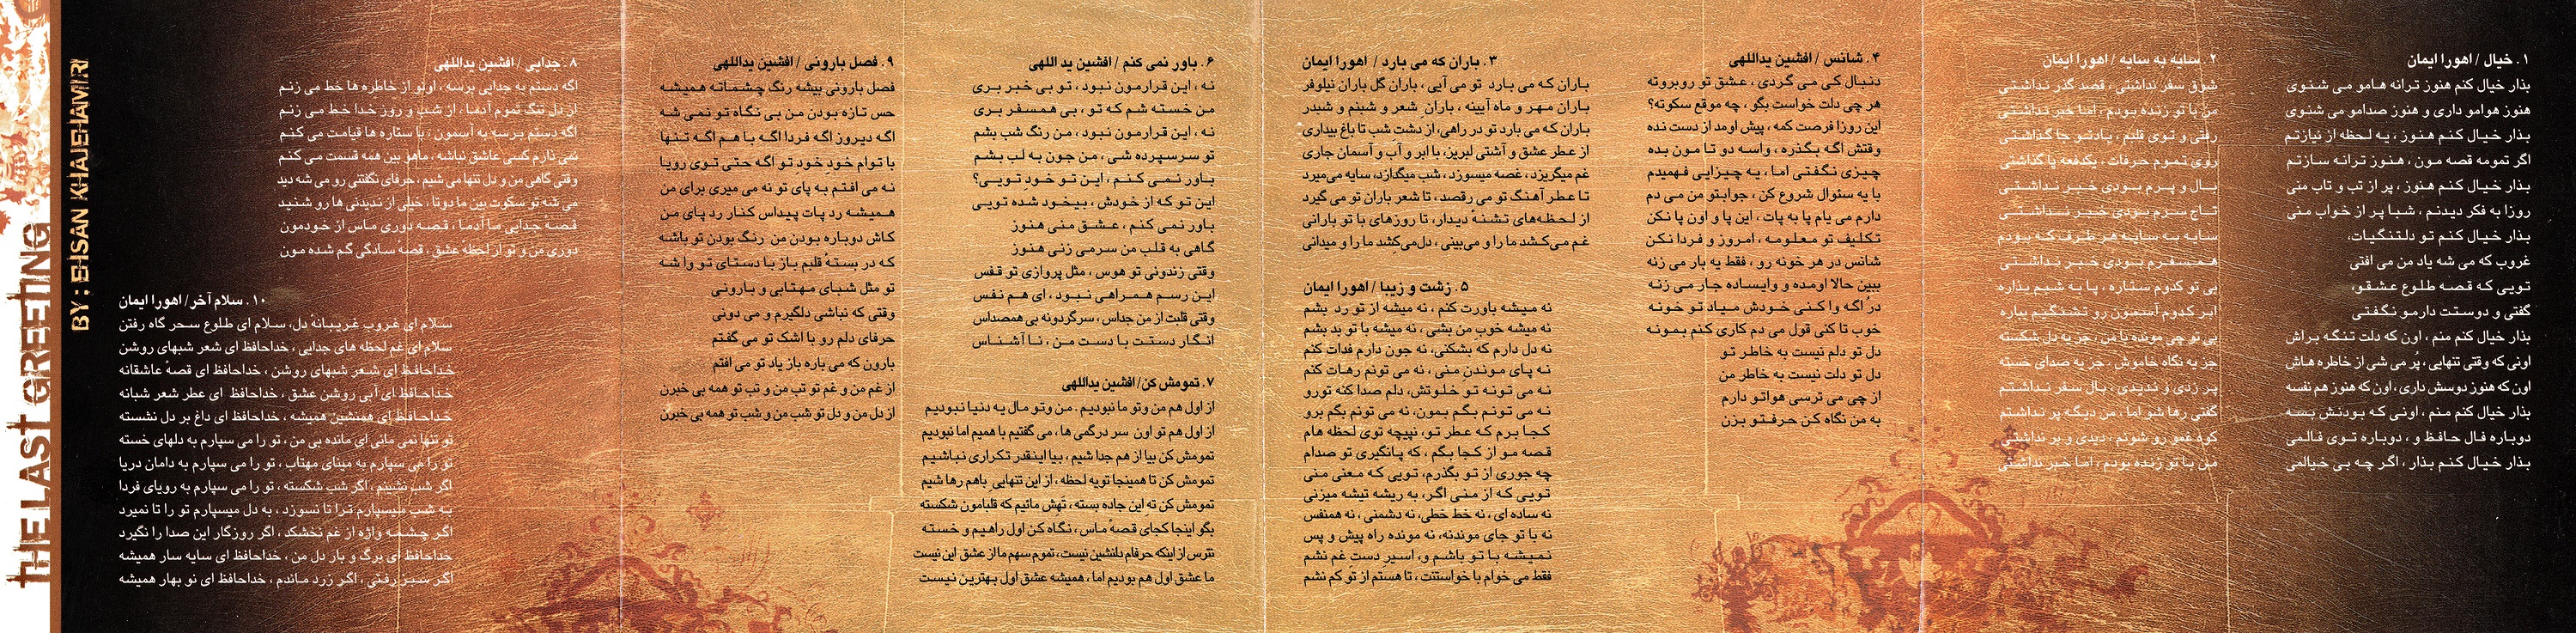 THE LAST GREETING
BY : EHSAN KHAJEHAMIRI
۱ . خیال / اهورا ایمان
بذار خیال کنم هنوز ترانه هامو می شنوی
هنوز هوامو داری و هنوز صدامو می شنوی
بذار خیال کنم هنوز ، یه لحظه از نیازتم
اگر تمومه قصه مون ، هنوز ترانه سازتم
بذار خیال کنم هنوز ، پر از تب و تاب منی
روزا به فکر دیدنم ، شبا پر از خواب منی
بذار خیال کنم تو دلتنگیات،
غروب که می شه یاد من می افتی
تویی که قصه طلوع عشقو،
گفتی و دوستت دارمو نگفتی
بذار خیال کنم منم ، اون که دلت تنگه براش
اونی که وقتی تنهایی ، پُر می شی از خاطره هاش
اون که هنوز دوسش داری ، اون که هنوز هم نفسه
بذار خیال کنم منم ، اونی که بودنش بسه
دوباره فال حافظ و ، دوباره توی فالمی
بذار خیال کنم بذار ، اگر چه بی خیالمی
۲ . سایه به سایه / اهورا ایمان
شوق سفر نداشتی ، قصد گذر نداشتی
من با تو زنده بودم ، اما خبر نداشتی
رفتی و توی قلبم ، یادتو جا گذاشتی
روی تموم حرفات ، یکدفعه پا گذاشتی
بال و پرم بودی خبر نداشتی
تاج سرم بودی خبر نداشتی
سایه به سایه هر طرف که بودم
همسفرم بودی خبر نداشتی
بی تو کدوم ستاره ، پا به شبم بذاره
ابر کدوم آسمون رو تشنگیم بباره
بی تو چی مونده با من ، جز یه دل شکسته
جز یه نگاه خاموش ، جز یه صدای خسته
پر زدی و ندیدی ، بال سفر نداشتم
گفتی رها شو اما ، من دیگه پر نداشتم
کوه غمو رو شونم ، دیدی و بر نداشتی
من با تو زنده بودم ، اما خبر نداشتی
۴ . شانس / افشین یداللهی
دنبال کی می گردی ، عشق تو روبروته
هر چی دلت خواست بگو ، چه موقع سکوته؟
این روزا فرصت کمه ، پیش اومد از دست نده
وقتش اگه بگذره ، واسه دو تا مون بده
چیزی نگفتی اما ، یه چیزایی فهمیدم
با یه سئوال شروع کن ، جوابتو من می دم
دارم می یام پا به پات ، این پا و اون پا نکن
تکلیف تو معلومه ، امروز و فردا نکن
شانس در هر خونه رو ، فقط یه بار می زنه
ببین حالا اومده و وایساده جار می زنه
درُ اگه وا کنی خودش میاد تو خونه
خوب تا کنی قول می دم کاری کنم بمونه
دل تو دلم نیست به خاطر تو
دل تو دلت نیست به خاطر من
از چی می ترسی هواتو دارم
به من نگاه کن حرفتو بزن
۳ . باران که می بارد / اهورا ایمان
باران که می بارد تو می آیی ، باران گل باران نیلوفر
باران مهر و ماه آیینه ، باران شعر و شبنم و شبدر
باران که می بارد تو در راهی ، از دشت شب تا باغ بیداری
از عطر عشق و آشتی لبریز، با ابر و آب و آسمان جاری
غم میگریزد، غصه میسوزد، شب میگدازد، سایه می‌میرد
تا عطر آهنگ تو می رقصد، تا شعر باران تو می گیرد
از لحظه‌های تشنهٔ دیدار، تا روزهای با تو بارانی
غم می‌کشد ما را و می‌بینی ، دل می‌کِشد ما را و میدانی
۵ . زشت و زیبا / اهورا ایمان
نه میشه باورت کنم ، نه میشه از تو رد بشم
نه میشه خوبِ من بشی ، نه میشه با تو بد بشم
نه دل دارم که بشکنی، نه جون دارم فدات کنم
نه پای موندنِ منی ، نه می تونم رهات کنم
نه می تونه تو خلوتش، دلم صدا کنه تورو
نه می تونم بگم بمون، نه می تونم بگم برو
کجا برم که عطر تو، نپیچه توی لحظه هام
قصه مو از کجا بگم ، که پانگیری تو صدام
چه جوری از تو بگذرم، تویی که معنی منی
تویی که از منی اگر، به ریشه تیشه میزنی
نه ساده ای ، نه خط خطی، نه دشمنی ، نه همنفس
نه با تو جای موندنه، نه مونده راه پیش و پس
نمیشه با تو باشم و، اسیر دست غم نشم
فقط می خوام با خواستنت ، تا هستم از تو کم نشم
۶ . باور نمی کنم / افشین ید اللهی
نه ، این قرارمون نبود ، تو بی خبر بری
من خسته شم که تو ، بی همسفر بری
نه ، این قرارمون نبود ، من رنگ شب بشم
تو سرسپرده شی ، من جون به لب بشم
باور نمی کنم ، این تو خود تویی؟
این تو که از خودش ، بیخود شده تویی
باور نمی کنم ، عشق منی هنوز
گاهی به قلب من سرمی زنی هنوز
وقتی زندونی تو هوس ، مثل پروازی تو قفس
این رسم همراهی نبود ، ای هم نفس
وقتی قلبت از من جداس ، سرگردونه بی همصداس
انگار دستت با دست من ، نا آشناس
۷ . تمومش کن/ افشین یداللهی
از اول هم من وتو ما نبودیم . من وتو مال یه دنیا نبودیم
از اول هم تو اون سر درگمی ها ، می گفتیم با همیم اما نبودیم
تمومش کن بیا از هم جدا شیم ، بیا اینقدر تکراری نباشیم
تمومش کن تا همینجا تویه لحظه ، از این تنهایی باهم رها شیم
تمومش کن ته این جاده بسته ، تهش مانیم که قلبامون شکسته
بگو اینجا کجای قصهٔ ماس ، نگاه کن اول راهیم و خسته
نترس از اینکه حرفام دلنشین نیست، تموم سهم ما از عشق این نیست
ما عشق اول هم بودیم اما ، همیشه عشق اول بهترین نیست
۹ . فصل بارونی / افشین یداللهی
فصل بارونی بیشه رنگ چشماته همیشه
حس تازه بودن من بی نگاه تو نمی شه
اگه دیروز اگه فردا اگه با هم اگه تنها
با توام خود خود تو اگه حتی توی رویا
نه می افتم به پای تو نه می میری برای من
همیشه رد پات پیداس کنار رد پای من
کاش دوباره بودن من رنگ بودن تو باشه
که در بستهٔ قلبم باز با دستای تو وا شه
تو مثل شبای مهتابی و بارونی
وقتی که نباشی دلگیرم و می دونی
حرفای دلم رو با اشک تو می گفتم
بارون که می باره باز یاد تو می افتم
از غم من و غم تو تب من و تب تو همه بی خبرن
از دل من و دل تو شب من و شب تو همه بی خبرن
۸ . جدایی / افشین یداللهی
اگه دستم به جدایی برسه ، اونو از خاطره ها خط می زنم
از دل تنگ تموم آدمها ، از شب و روز خدا خط می زنم
اگه دستم برسه به آسمون ، با ستاره ها قیامت می کنم
نمی ذارم کسی عاشق نباشه ، ماهو بین همه قسمت می کنم
وقتی گاهی من و دل تنها می شیم ، حرفای نگفتنی رو می شه دید
می شه تو سکوت بین ما دوتا ، خیلی از ندیدنی ها رو شنید
قصه جدایی ما آدما ، قصه دوری ماس از خودمون
دوری من و تو از لحظهٔ عشق ، قصهٔ سادگی گم شده مون
۱۰ . سلام آخر/ اهورا ایمان
سلام ای غروب غریبانهٔ دل، سلام ای طلوع سحر گاه رفتن
سلام ای غم لحظه های جدایی ، خداحافظ ای شعر شبهای روشن
خداحافظ ای شعر شبهای روشن ، خداحافظ ای قصهٔ عاشقانه
خداحافظ ای آبی روشن عشق ، خداحافظ ای عطر شعر شبانه
خداحافظ ای همنشین همیشه ، خداحافظ ای داغ بر دل نشسته
تو تنها نمی مانی ای مانده بی من ، تو را می سپارم به دلهای خسته
تو را می سپارم به مینای مهتاب ، تو را می سپارم به دامان دریا
اگر شب نشینم ، اگر شب شکسته ، تو را می سپارم به رویای فردا
به شب میسپارم ترا تا نسوزد ، به دل میسپارم تو را تا نمیرد
اگر چشمه واژه از غم نخشکد ، اگر روزگار این صدا را نگیرد
خداحافظ ای برگ و بار دل من ، خداحافظ ای سایه سار همیشه
اگر سبز رفتی ، اگر زرد ماندم ، خداحافظ ای نو بهار همیشه